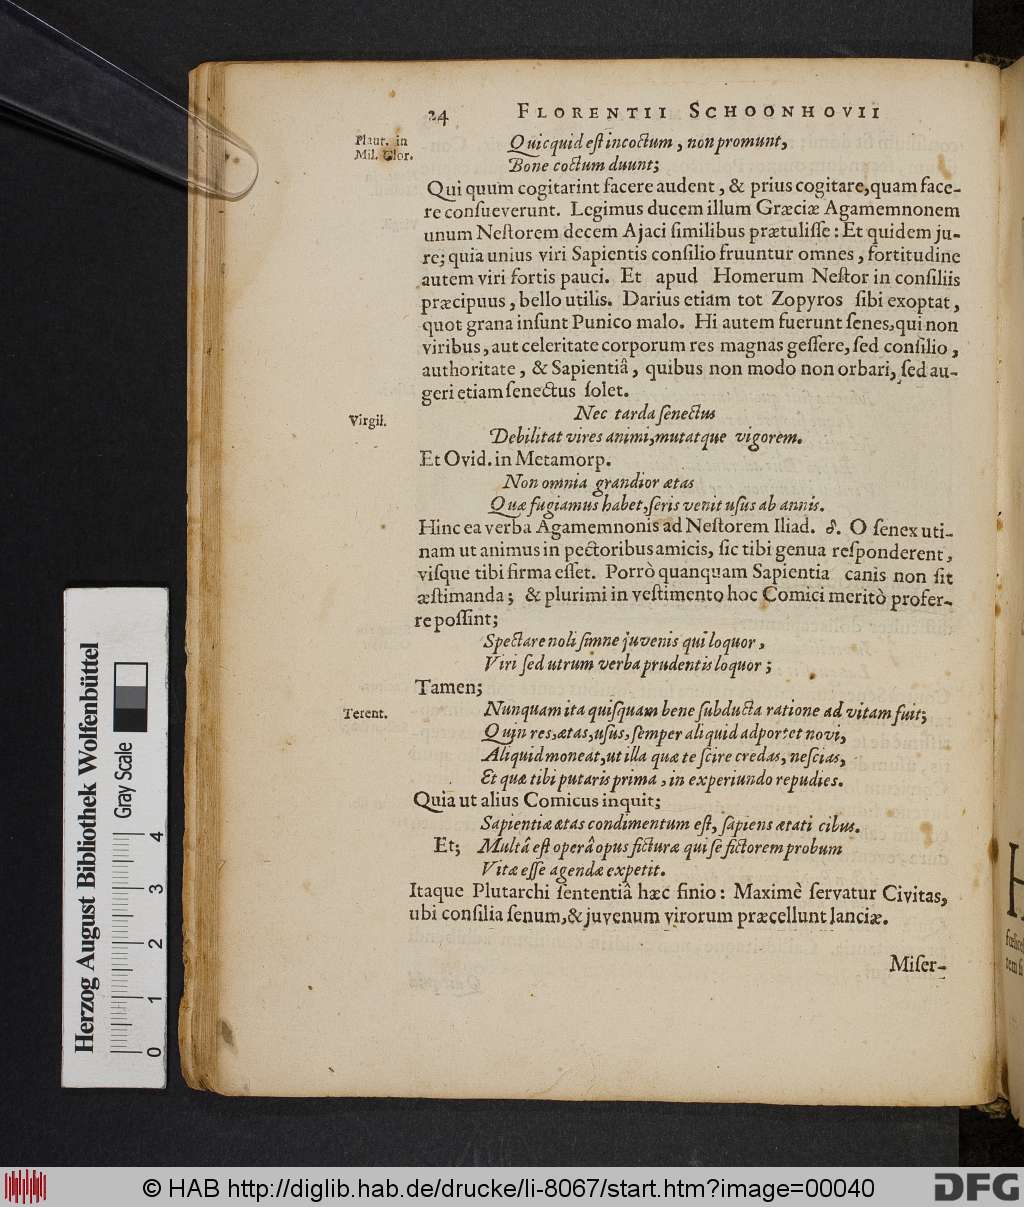 24 FLORENTII SCHOONHOVII
Plaut. in
Mil. Glor.
Quicquid eſt incoctum, non promunt,
Bone coctum duunt;
Qui quum cogitarint facere audent, & prius cogitare, quam face-
re conſueverunt. Legimus ducem illum Græciæ Agamemnonem
unum Neſtorem decem Ajaci ſimilibus prætuliſſe: Et quidem ju-
re; quia unius viri Sapientis conſilio fruuntur omnes, fortitudine
autem viri fortis pauci. Et apud Homerum Neſtor in conſiliis
præcipuus, bello utilis. Darius etiam tot Zopyros ſibi exoptat,
quot grana inſunt Punico malo. Hi autem fuerunt ſenes, qui non
viribus, aut celeritate corporum res magnas geſſere, ſed conſilio,
authoritate, & Sapientiâ, quibus non modo non orbari, ſed au-
geri etiam ſenectus ſolet.
Virgil.
Nec tarda ſenectus
Debilitat vires animi, mutatque vigorem.
Et Ovid. in Metamorp.
Non omnia grandior ætas
Quæ fugiamus habet, ſeris venit uſus ab annis.
Hinc ea verba Agamemnonis ad Neſtorem Iliad. δ. O ſenex uti-
nam ut animus in pectoribus amicis, ſic tibi genua reſponderent,
viſque tibi firma eſſet. Porrò quanquam Sapientia canis non ſit
æſtimanda; & plurimi in veſtimento hoc Comici meritò profer-
re poſſint;
Spectare noli ſimne juvenis qui loquor,
Viri ſed utrum verba prudentis loquor;
Tamen;
Terent.
Nunquam ita quiſquam bene ſubducta ratione ad vitam fuit;
Quin res, ætas, uſus, ſemper aliquid adportet novi,
Aliquid moneat, ut illa quæ te ſcire credas, neſcias,
Et quæ tibi putaris prima, in experiundo repudies.
Quia ut alius Comicus inquit;
Sapientiæ ætas condimentum eſt, ſapiens ætati cibus.
Et; Multâ eſt operâ opus ficturæ qui ſe fictorem probum
Vitæ eſſe agendæ expetit.
Itaque Plutarchi ſententiâ hæc finio: Maximè ſervatur Civitas,
ubi conſilia ſenum, & juvenum virorum præcellunt lanciæ.
Miſer-
Herzog August Bibliothek Wolfenbüttel
Gray Scale
0 1 2 3 4
© HAB http://diglib.hab.de/drucke/li-8067/start.htm?image=00040
DFG